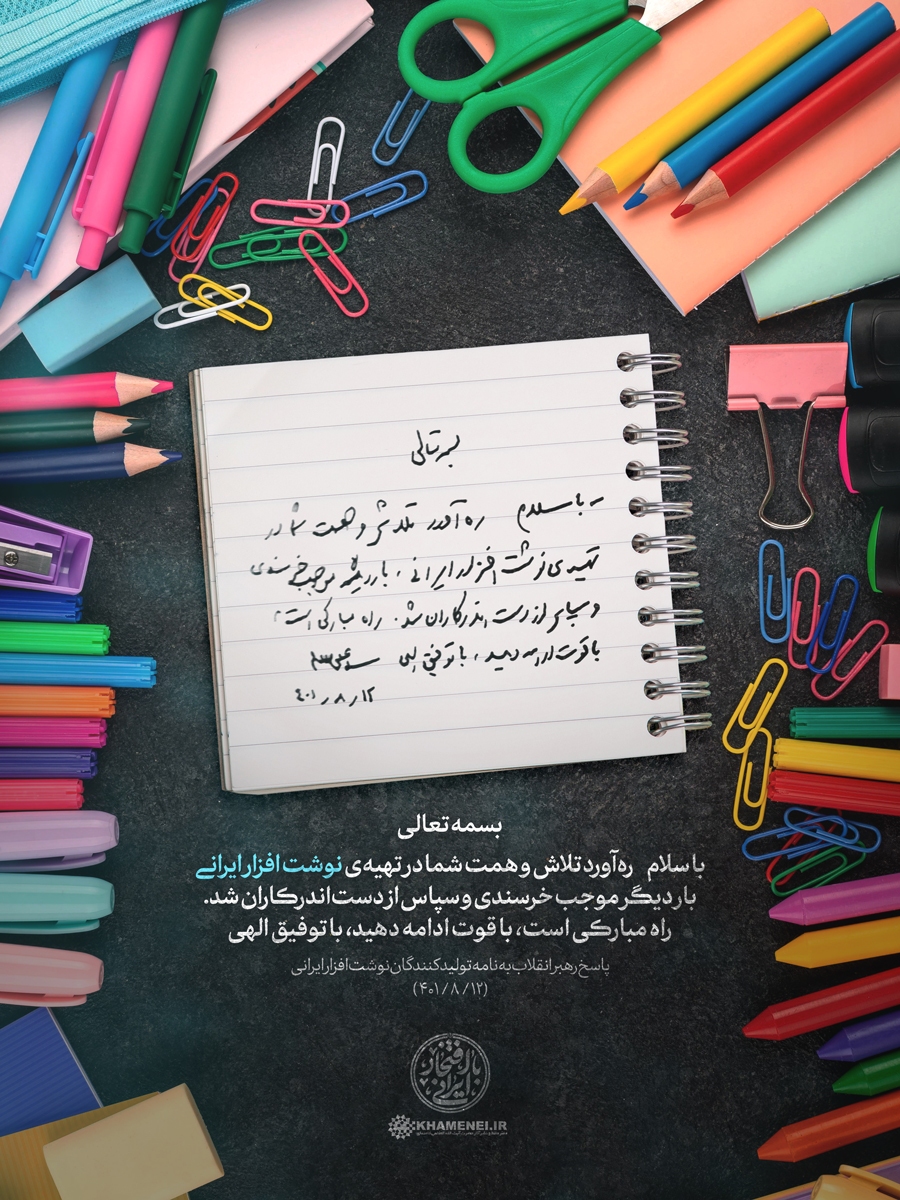 بسمه تعالی
با سلام ره آورد تلاش و همت شما در
تهیه‌ی نوشت افزار ایرانی، بار دیگر موجب خرسندی
و سپاس از دست اندرکاران شد. راه مبارکی است،
با قوت ادامه دهید، با توفیق الهی
۴۰۱/۸/۱۲
بسمه تعالی
با سلام ره‌آورد تلاش و همت شما در تهیه‌ی نوشت افزار ایرانی
بار دیگر موجب خرسندی و سپاس از دست‌اندرکاران شد.
راه مبارکی است، با قوت ادامه دهید، با توفیق الهی
پاسخ رهبر انقلاب به نامه تولیدکنندگان نوشت افزار ایرانی
(۴۰۱/۸/۱۲)
با افتخار ایرانی
KHAMENEI.IR